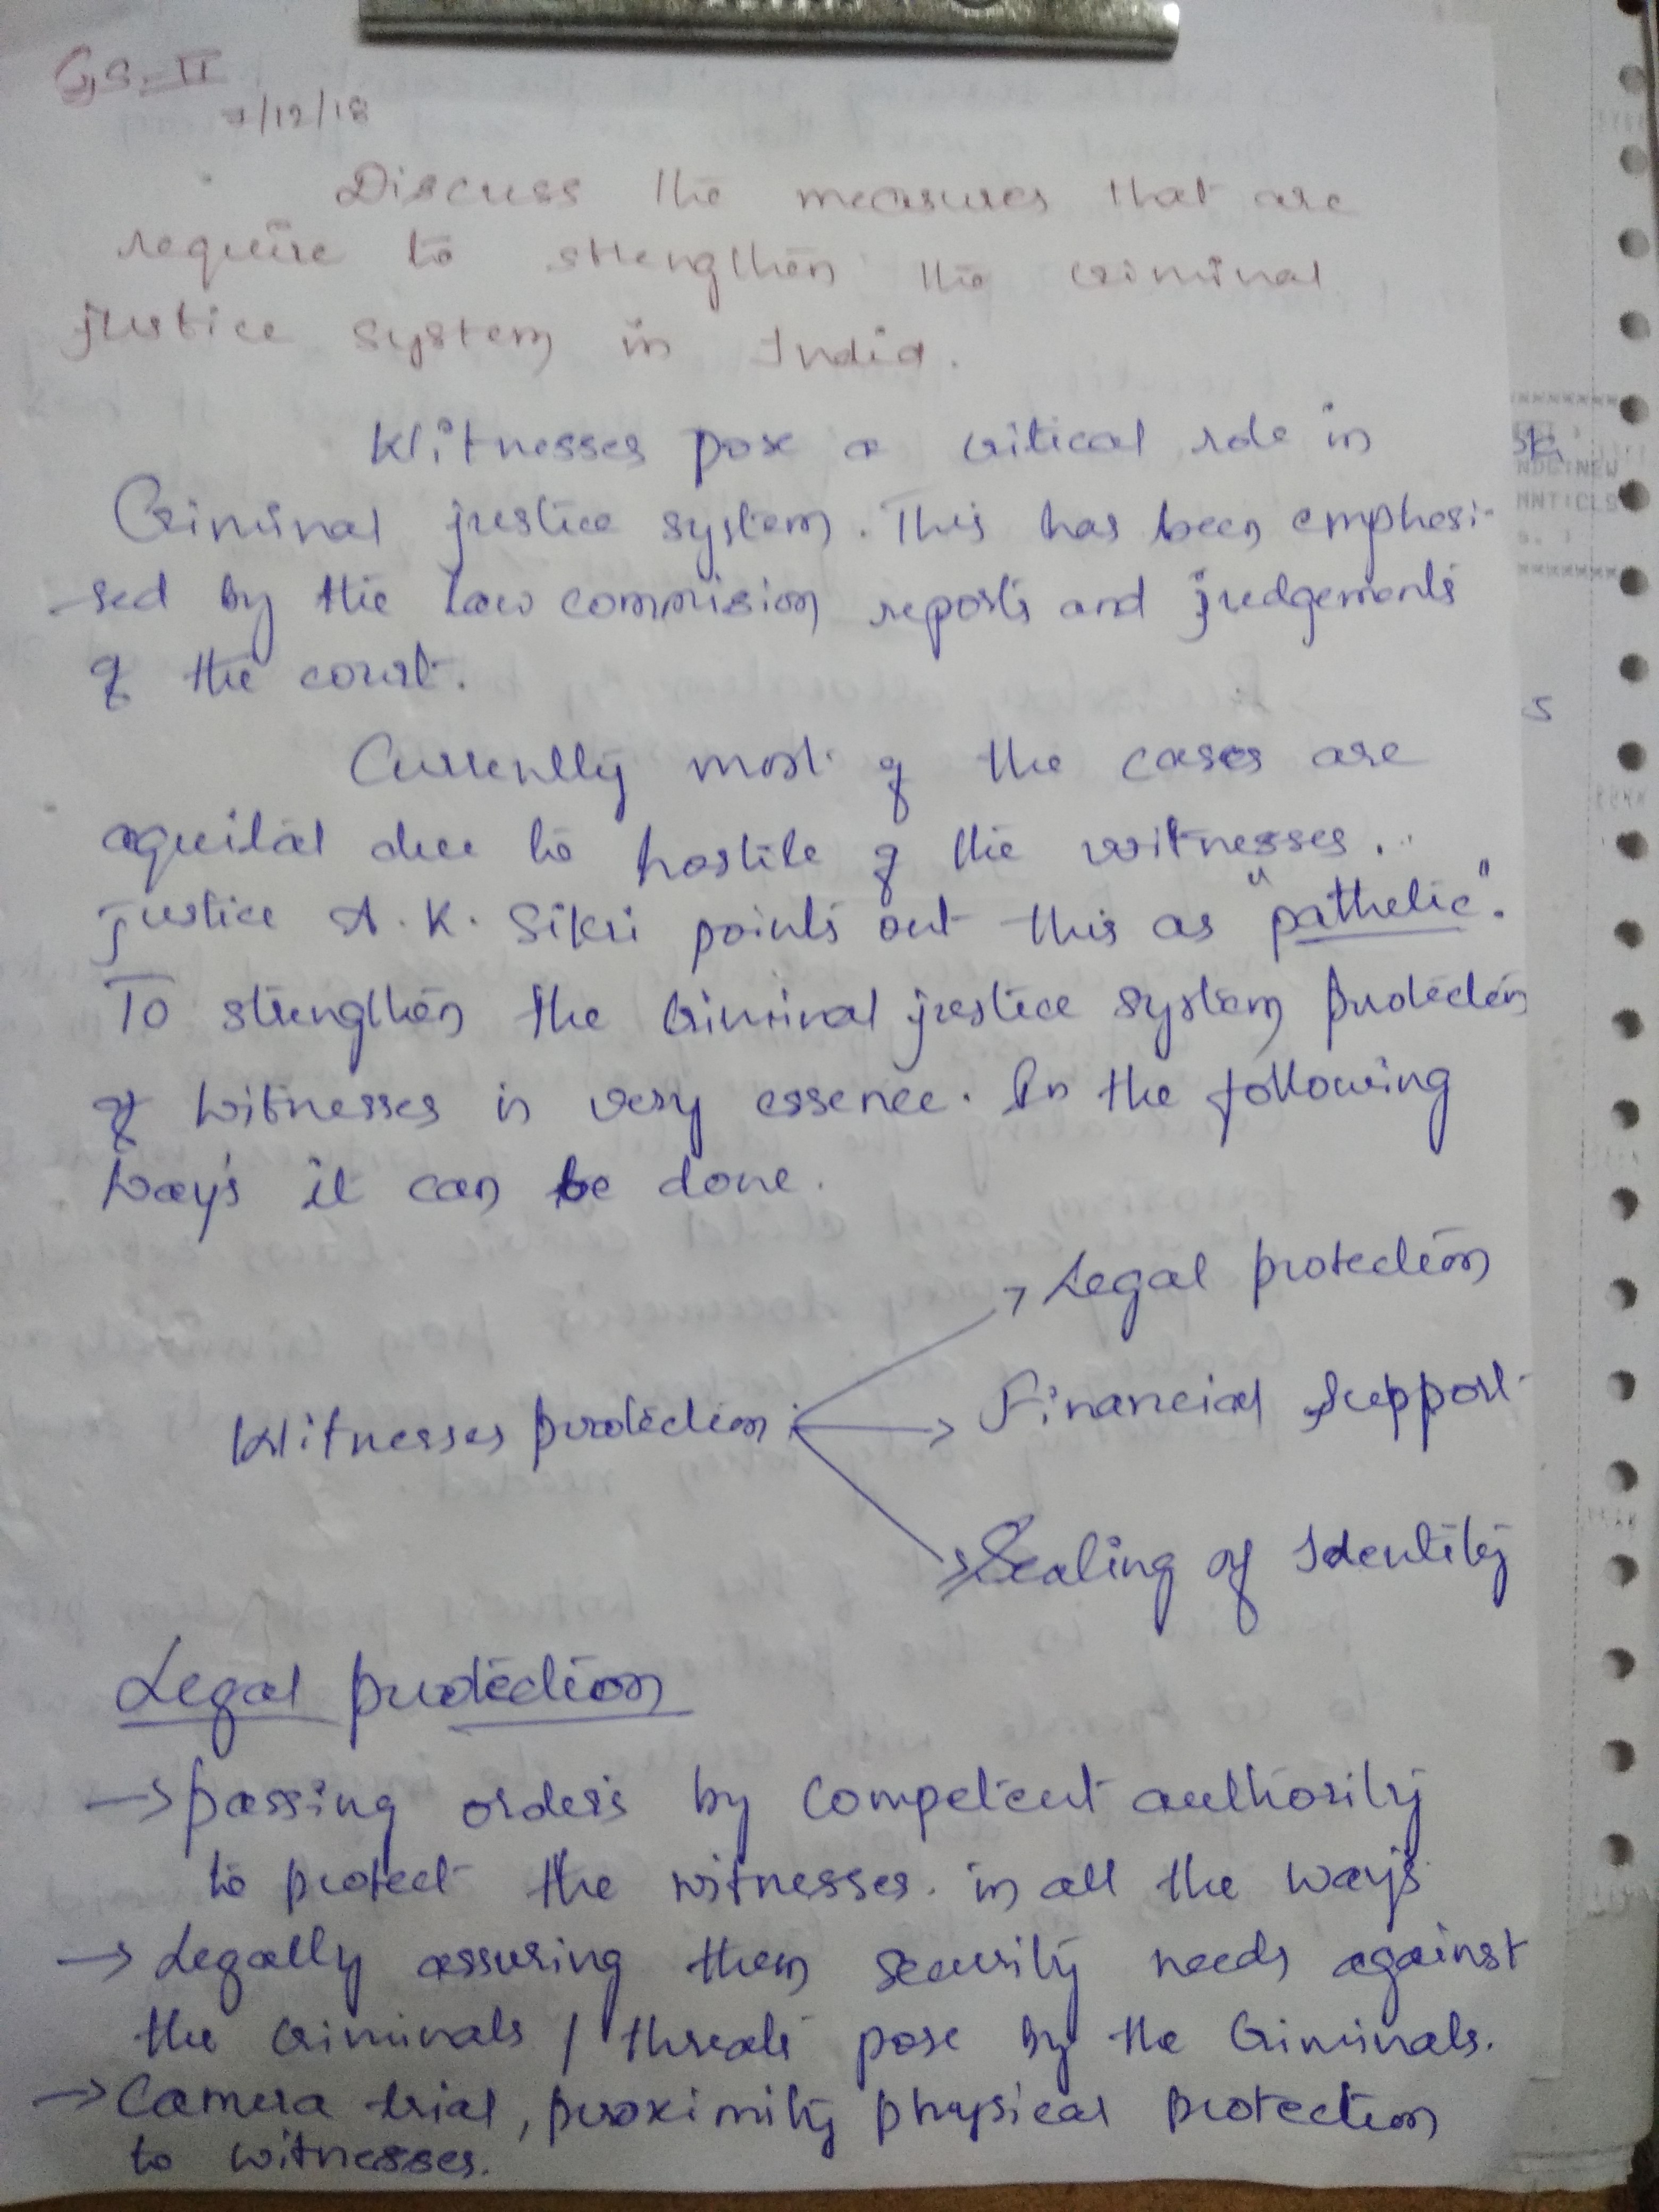 GS-II
7/12/18
Discuss the measures that are
require to strengthen the criminal
justice system in India.
Witnesses pose a critical role in
Criminal justice system. This has been emphesi-
-sed by the Law commision reports and judgements
of the court.
Currently most of the cases are
aquital due to hostile of the witnesses.
justice A. K. Sikri points out this as "pathetic".
To strengthen the Criminal justice system protection
of witnesses is very essence. In the following
ways it can be done.
Legal protection
Witnesses protection
Financial Support
Sealing of Identity
Legal protection
→ passing orders by Competent authority
to protect the witnesses. in all the ways
→ Legally assuring them security needs against
the Criminals / threats pose by the Criminals.
→ Camera trial, proximity physical protection
to witnesses.